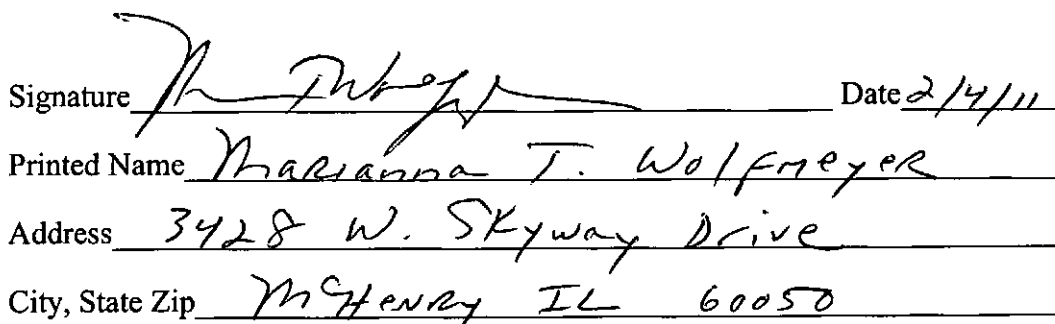 Signature Date 2/4/11
Printed Name Marianna T. Wolfmeyer
Address 3428 W. Skyway Drive
City, State Zip McHenry IL 60050